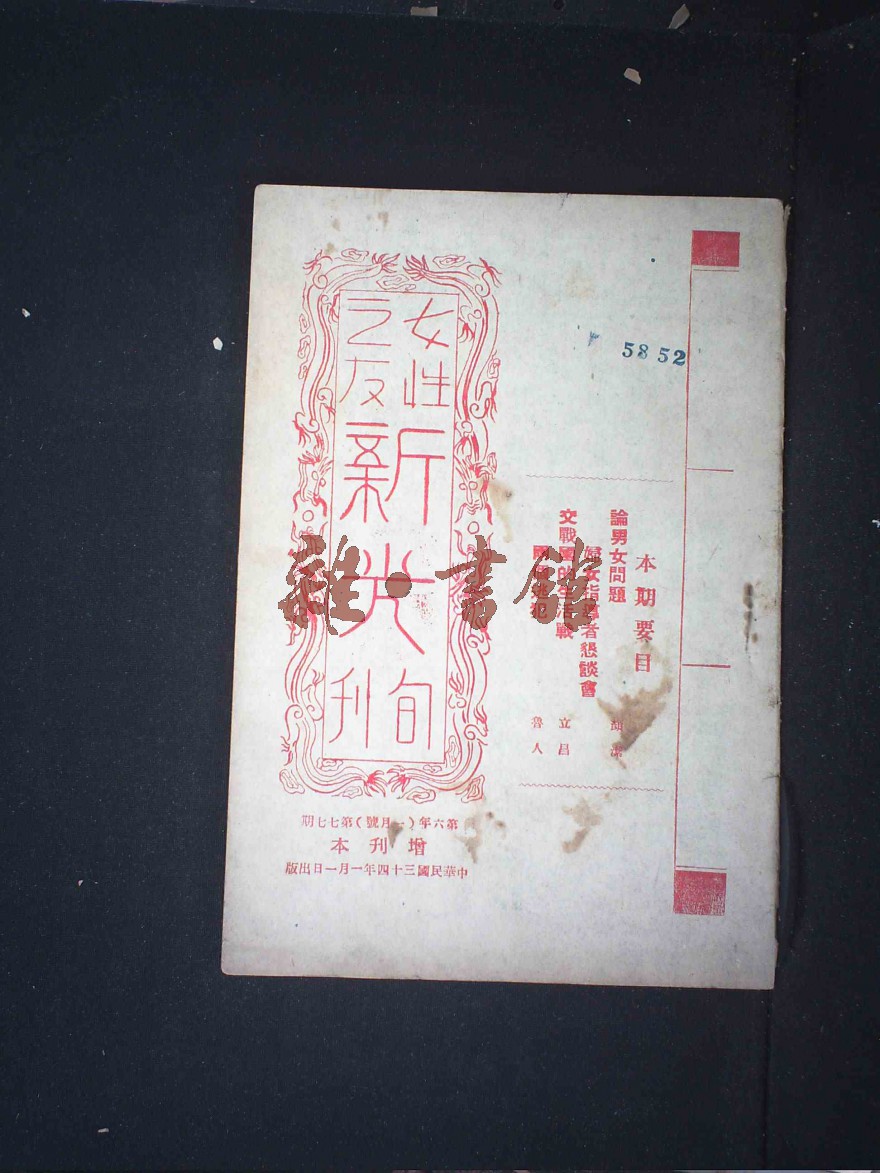 5852
本期要目
論男女問題
婦女指導者懇談會
交戰國的生活戰
立昌
魯人
女性
之友
新光
旬刊
第六年（一月號）第七七期
增刊本
中華民國三十四年一月一日出版
雜·書館